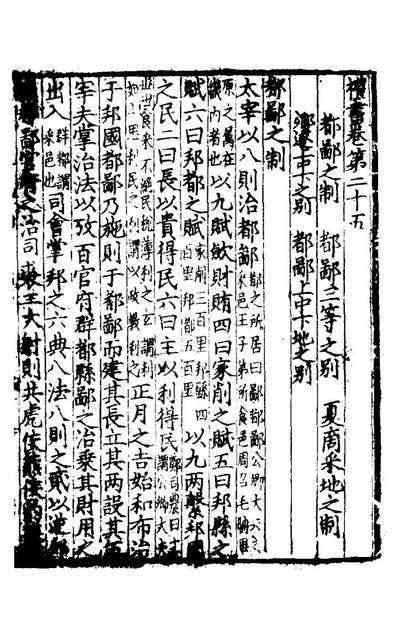 禮書卷第二十五
都鄙之制　都鄙三等之別　夏周采地之制
鄉遂　之別　都鄙上中下地之別
都鄙之制
太宰以八則治都鄙都之所居曰鄙都鄙公卿大夫之采邑王子弟所食邑周召毛聃畢
原之屬在畿內者也以九賦斂財賄四曰家削之賦五曰邦縣之
賦六曰邦都之賦家削三百里邦縣四百里邦都五百里以九兩繫邦國
之民二曰長以貴得民六曰主以利得民鄭司農曰主謂公卿大夫
世世食采不絕民稅薄利之玄謂利讀如上思利民之利謂以政教利之正月之吉始和布治
于邦國都鄙乃施則于都鄙而建其長立其兩設其伍
宰夫掌治法以攷百官府群都縣鄙之治乘其財用之
出入群都謂采邑也司會掌邦之六典八法八則之貳以逆邦
都鄙官府之治司裘王大射則共虎侯熊侯豹